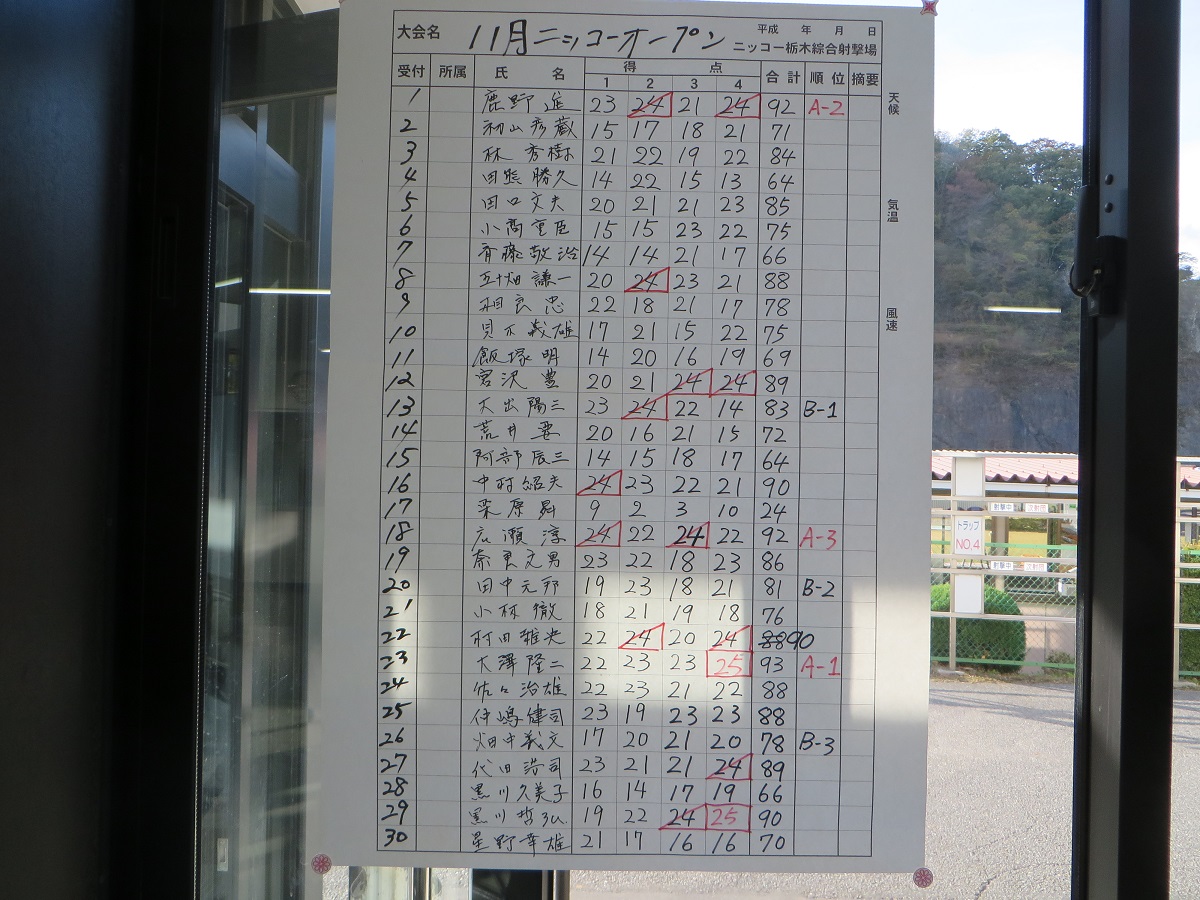 大会名 11月ニッコーオープン 平成 年 月 日
ニッコー栃木綜合射撃場
受付 所属 氏 名 得 点 合計 順位 摘要
1 2 3 4
1 鹿野 進 23 24 21 24 92 A-2
2 初山彦蔵 15 17 18 21 71
3 林 秀樹 21 22 19 22 84
4 田熊勝久 14 22 15 13 64
5 田口文夫 20 21 21 23 85
6 小高重臣 15 15 23 22 75
7 斉藤敬治 14 14 21 17 66
8 五十畑謙一 20 24 23 21 88
9 相良 忠 22 18 21 17 78
10 貝木義雄 17 21 15 22 75
11 飯塚 明 14 20 16 19 69
12 宮沢 豊 20 21 24 24 89
13 大出陽三 23 24 22 14 83 B-1
14 荒井 要 20 16 21 15 72
15 阿部辰三 14 15 18 17 64
16 中村紹夫 24 23 22 21 90
17 栗原 9 2 3 10 24
18 広瀬 淳 24 22 24 22 92 A-3
19 奈良文男 23 22 18 23 86
20 田中元邦 19 23 18 21 81 B-2
21 小林 徹 18 21 19 18 76
22 村田雅央 22 24 20 24 88 90
23 大澤隆二 22 23 23 25 93 A-1
24 佐々治雄 22 23 21 22 88
25 仲嶋健司 23 19 23 23 88
26 畑中義文 17 20 21 20 78 B-3
27 代田浩司 23 21 21 24 89
28 黒川久美子 16 14 17 19 66
29 黒川哲弘 19 22 24 25 90
30 星野幸雄 21 17 16 16 70
天候
気温
風速
トラップ
NO.4